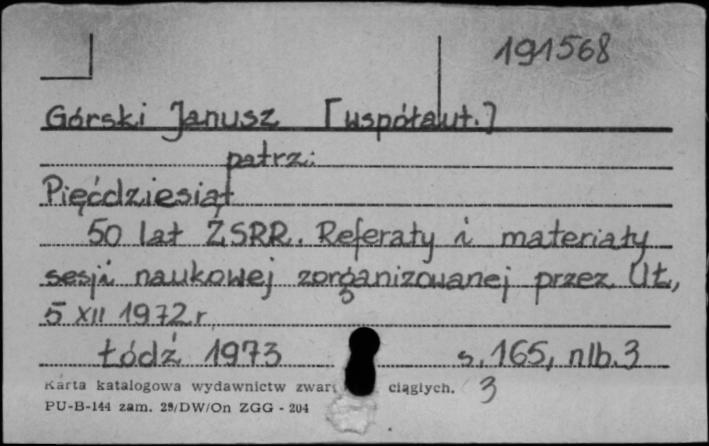 191568
Górski Janusz [współaut.]
patrz:
Pięćdziesiąt
50 lat ZSRR. Referaty i materiały
sesji naukowej zorganizowanej przez UŁ,
5 XII 1972 r.
Łódź 1973 s. 165, nlb. 3
Karta katalogowa wydawnictw ciągłych. 3
PU-B-144 zam. 29/DW/On ZGG - 204